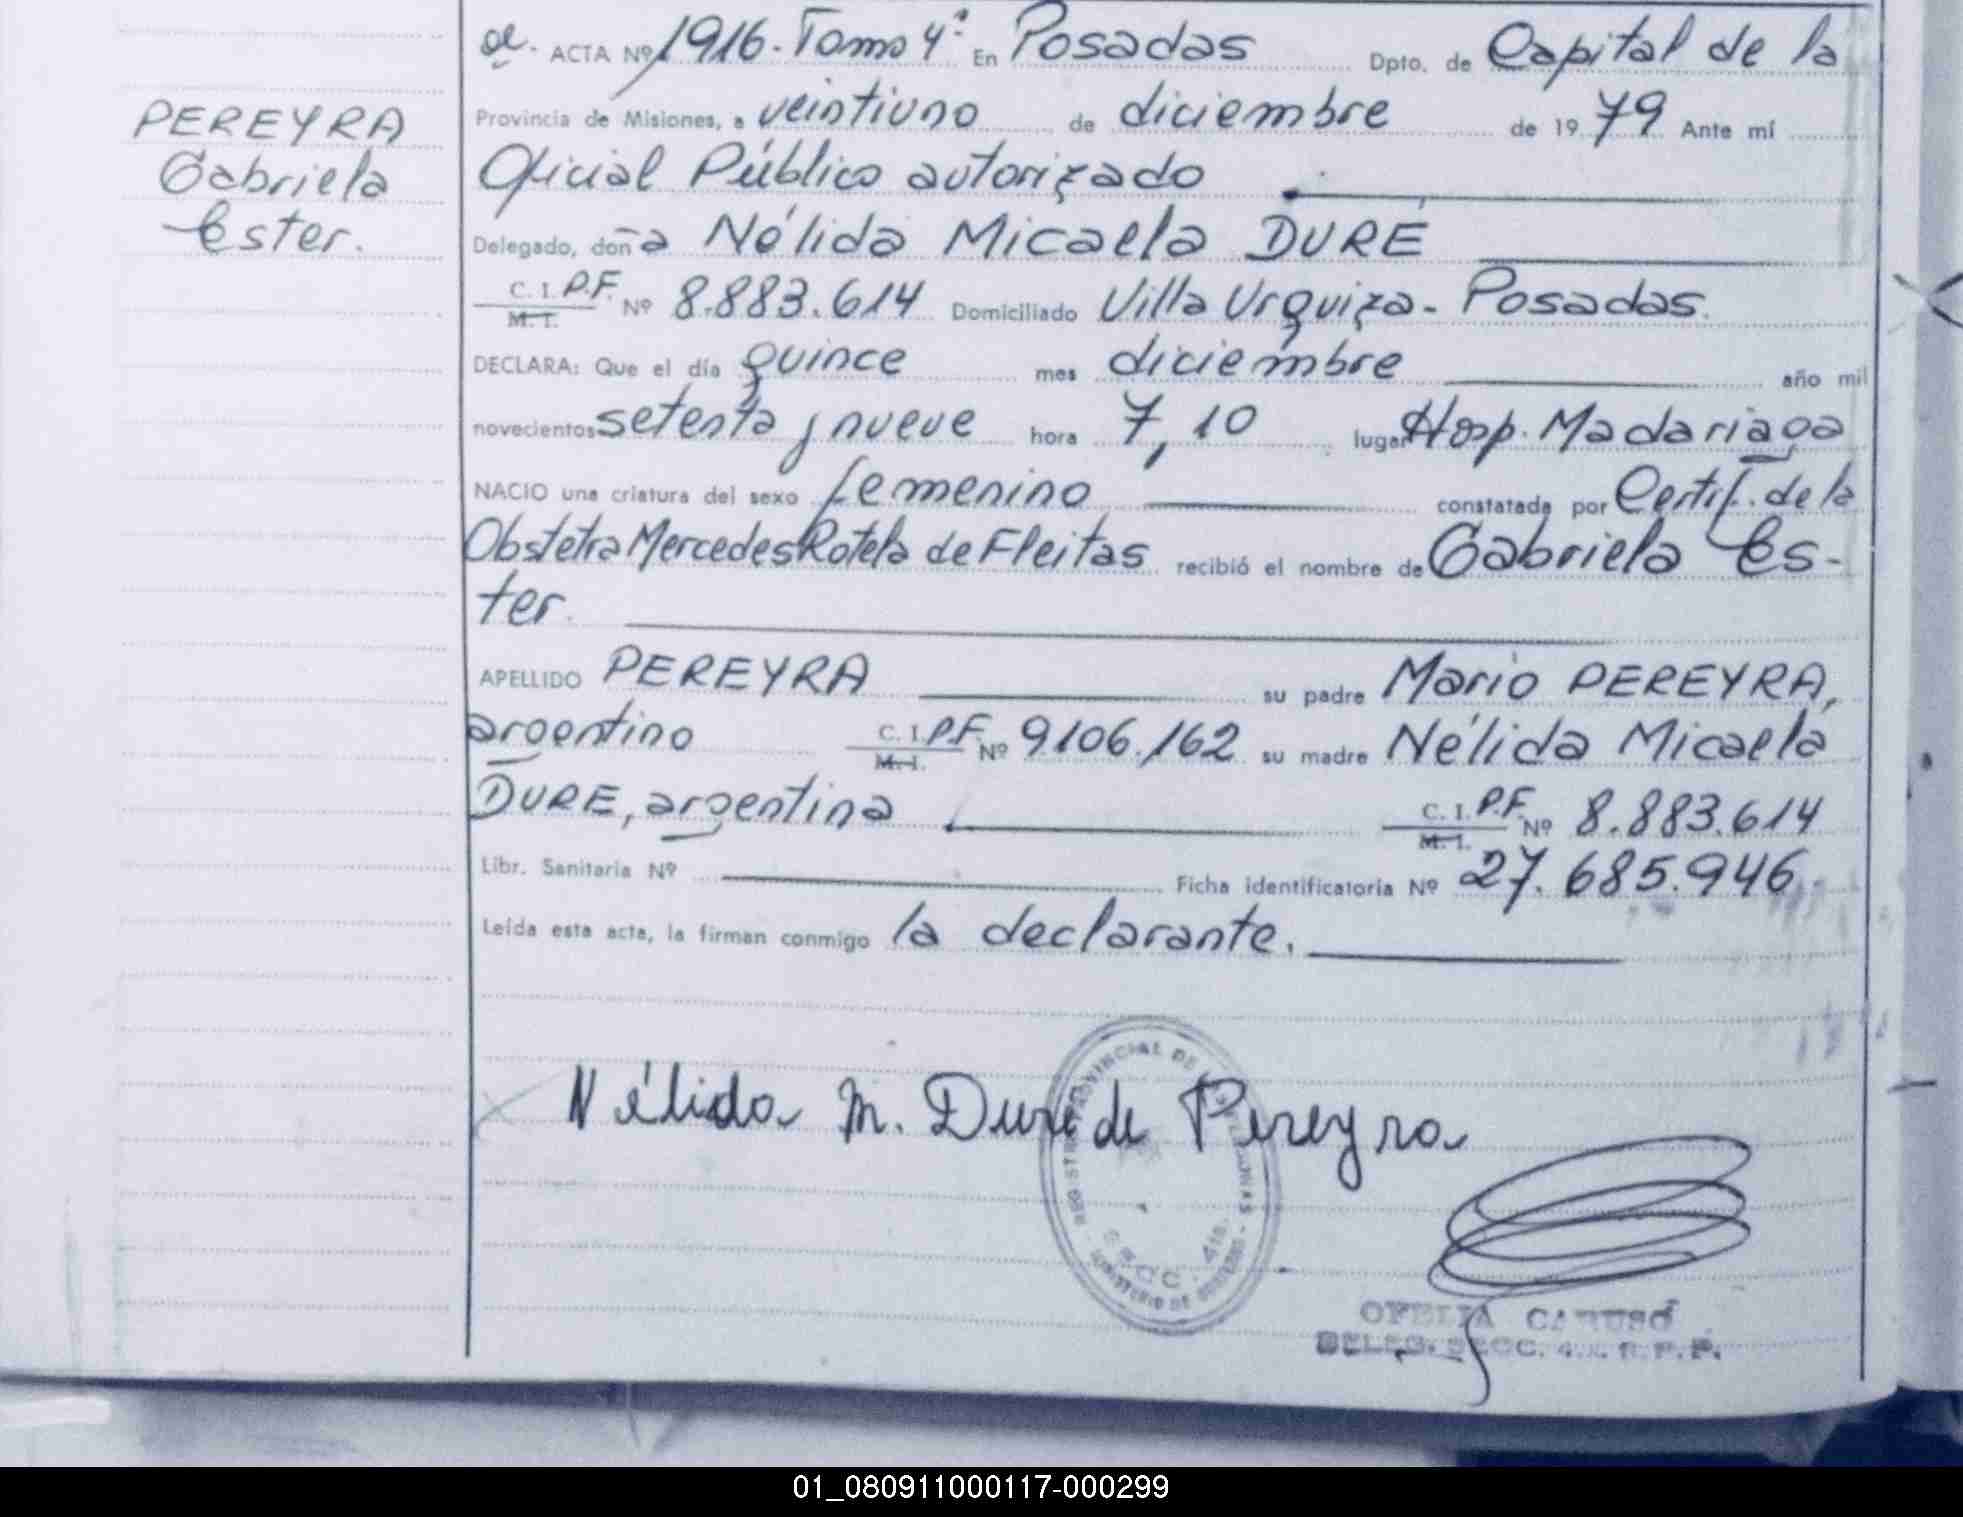 a. ACTA Nº 1916. Tomo 4º En Posadas Dpto. de Capital de la
PEREYRA
Gabriela
Ester.
Provincia de Misiones, a veintiuno de diciembre de 1979 Ante mí
Oficial Público autorizado
Delegado, doña Nélida Micaela DURÉ
C. I. P.F. Nº 8.883.614 Domiciliado Villa Urquiza - Posadas.
M. I.
DECLARA: Que el día quince mes diciembre año mil
novecientos setenta y nueve hora 7,10 lugar Hosp. Madariaga
NACIO una criatura del sexo femenino constatada por Certif. de la
Obstetra Mercedes Rotela de Fleitas recibió el nombre de Gabriela Es-
ter.
APELLIDO PEREYRA su padre Mario PEREYRA,
argentino C. I. P.F. Nº 9.106.162 su madre Nélida Micaela
M. I.
DURE, argentina C. I. P.F. Nº 8.883.614
M. I.
Libr. Sanitaria Nº Ficha identificatoria Nº 27.685.946
Leída esta acta, la firman conmigo la declarante.
Nélida M. Duré de Pereyra
REGISTRO PROVINCIAL DE LAS PERSONAS
SECC. 4ta.
MINISTERIO DE GOBIERNO
OFELIA CARUSO
DELEG. SECC. 4a. R.P.P.
01_080911000117-000299